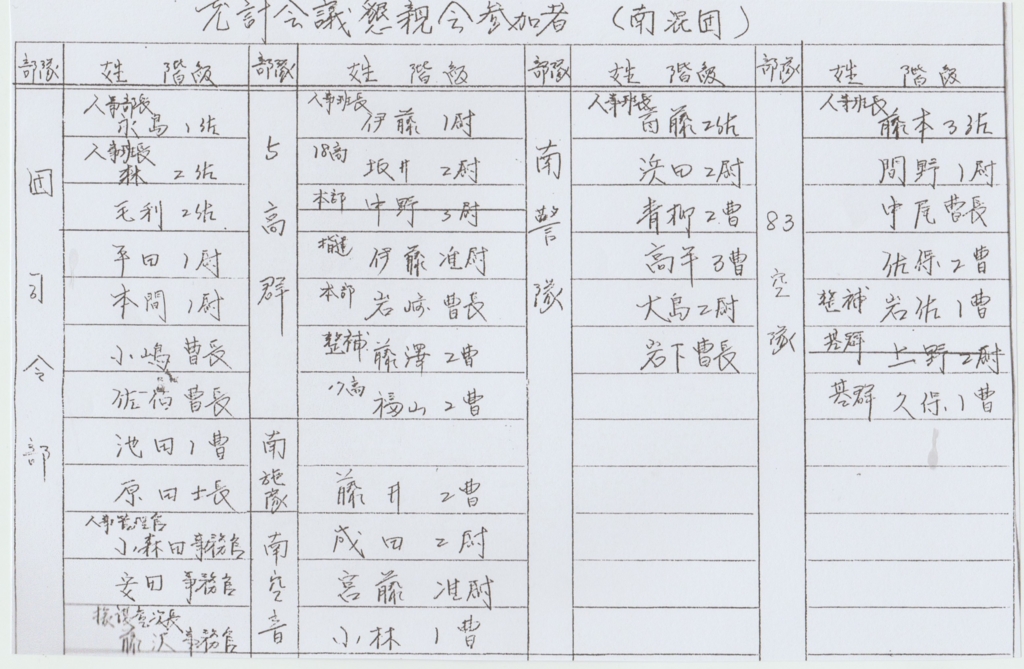 充計会議懇親会参加者 (南混団)
部隊 姓 階級 部隊 姓 階級 部隊 姓 階級 部隊 姓 階級
団司令部
人事部長
永島 1佐
人事班長
森 2佐
毛利 2佐
平田 1尉
本間 1尉
小嶋 曹長
佐伯 曹長
池田 1曹
原田 士長
人事管理官
小森田 事務官
安田 事務官
援護室次長
藤沢 事務官
5高群
人事班長
伊藤 1尉
18高
坂井 2尉
本部 中野 3尉
指運 伊藤 准尉
本部 岩崎 曹長
整補 藤澤 2曹
17高 福山 2曹
南施隊
藤井 2曹
南空音
成田 2尉
宮藤 准尉
小林 1曹
南警隊
人事班長
首藤 2佐
浜田 2尉
青柳 2曹
高平 3曹
大島 2尉
岩下 曹長
83空隊
人事班長
藤本 3佐
間野 1尉
中尾 曹長
佐保 2曹
整補 岩佐 1曹
基群 上野 2尉
基群 久保 1曹